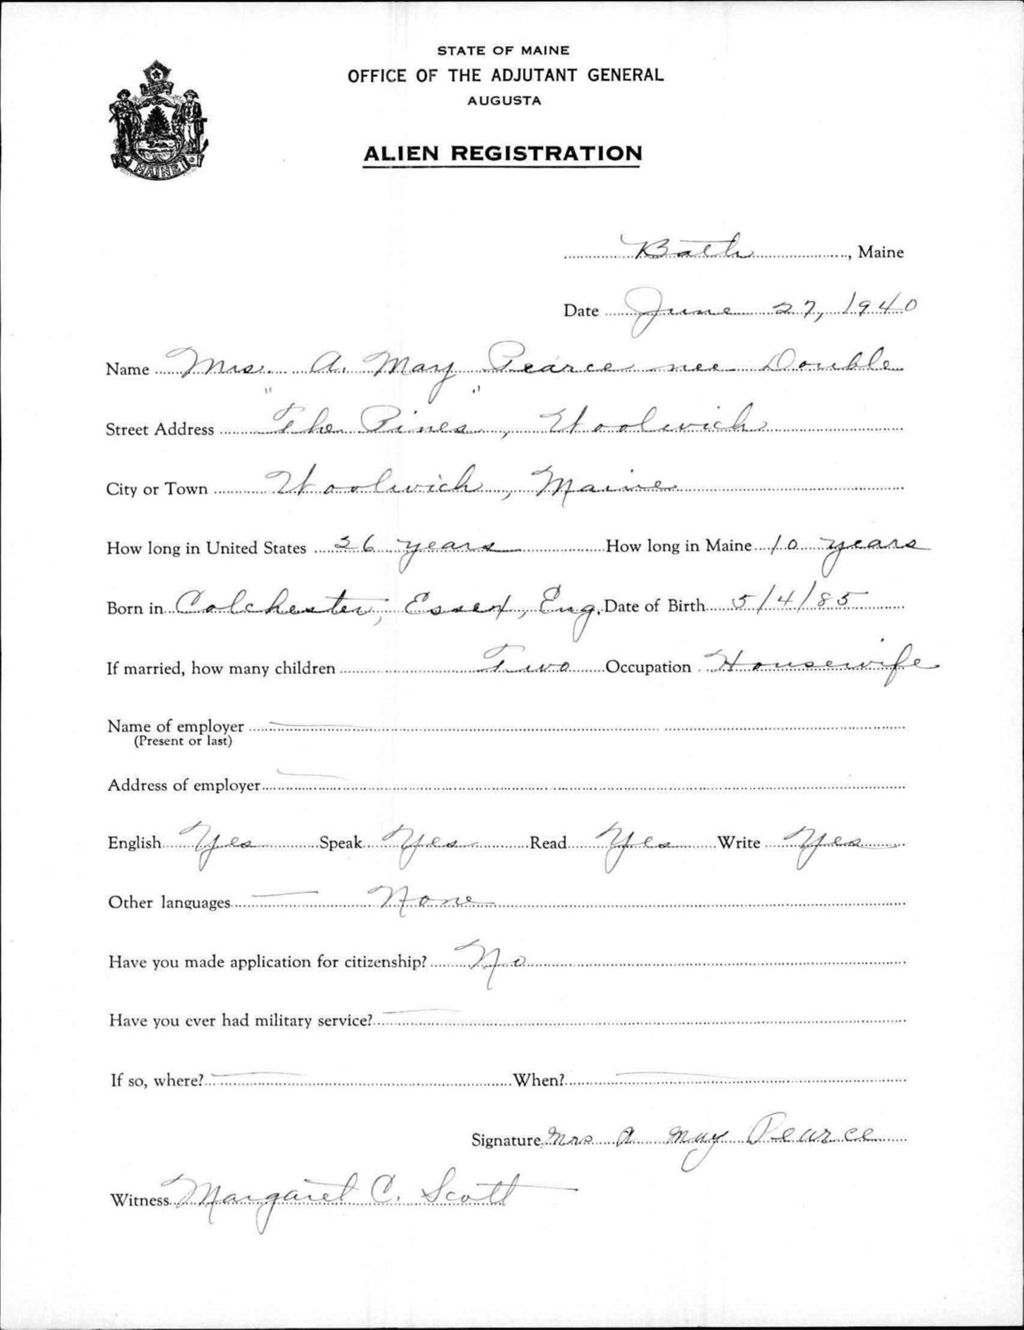 STATE OF MAINE
OFFICE OF THE ADJUTANT GENERAL
AUGUSTA
ALIEN REGISTRATION
MAINE
Bath, Maine
Date June 27, 1940
Name Mrs. A. May Pearce nee Double
Street Address "The Pines", Woolwich
City or Town Woolwich, Maine
How long in United States 26 years How long in Maine 10 years
Born in Colchester, Essex, Eng. Date of Birth 5/4/85
If married, how many children Two Occupation Housewife
Name of employer
(Present or last)
Address of employer
English Yes Speak Yes Read Yes Write Yes
Other languages None
Have you made application for citizenship? No
Have you ever had military service?
If so, where? When?
Signature Mrs A May Pearce
Witness Margaret C. Scott